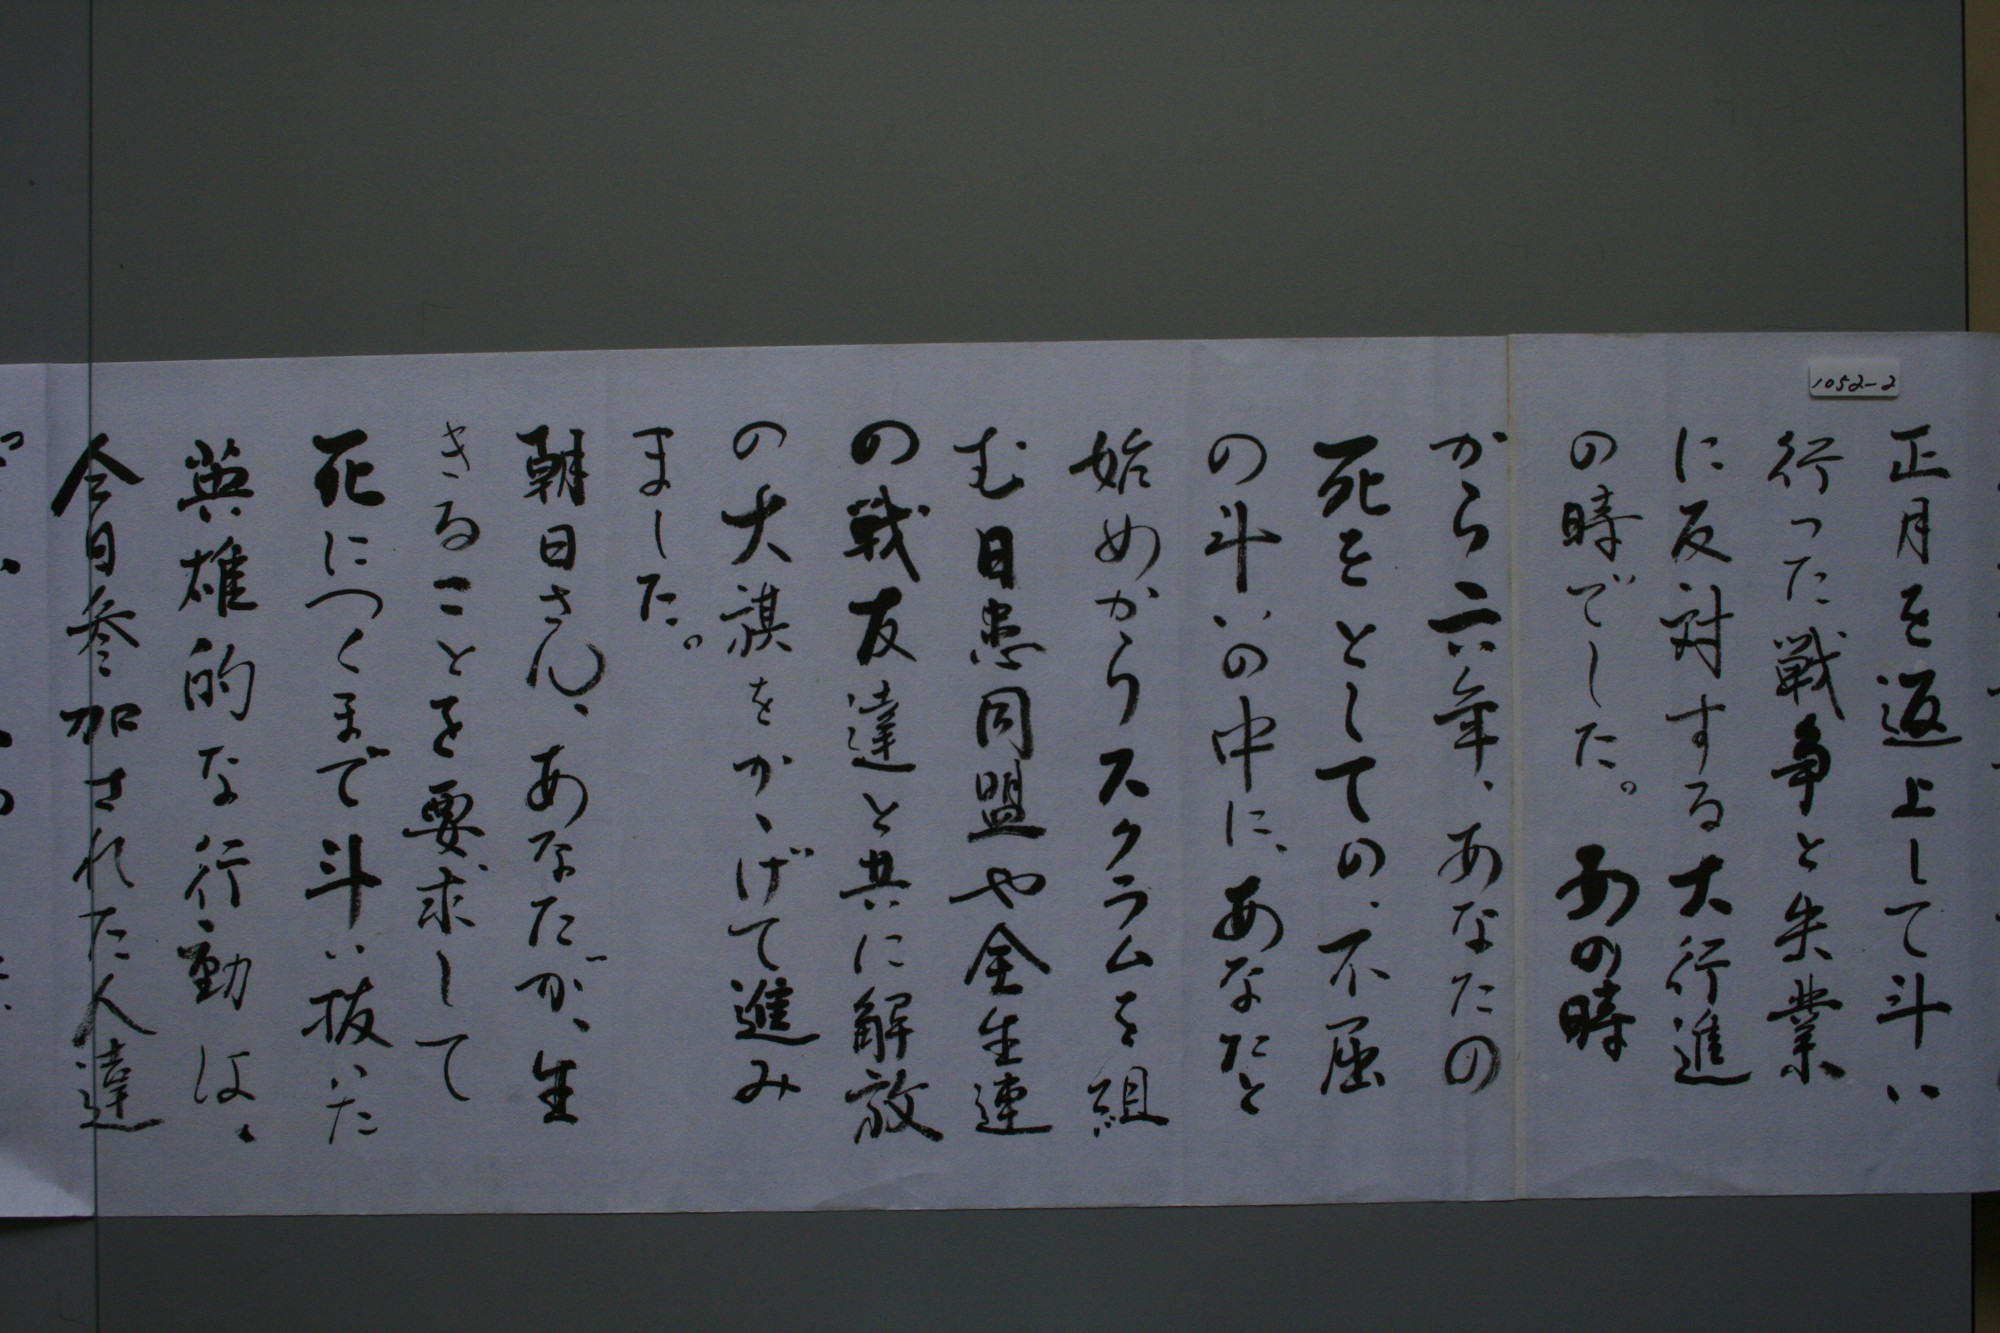 1052-2
正月を返上して斗い
行った戦争と失業
に反対する大行進
の時でした。あの時
から六年、あなたの
死をとしての、不屈
の斗いの中に、あなたと
始めからスクラムを組
む日患同盟や全生連
の戦友達と共に解放
の大旗をかゝげて進み
ました。
朝日さん、あなたが、生
きることを要求して
死につくまで斗い抜いた
英雄的な行動は、
今日参加された人達